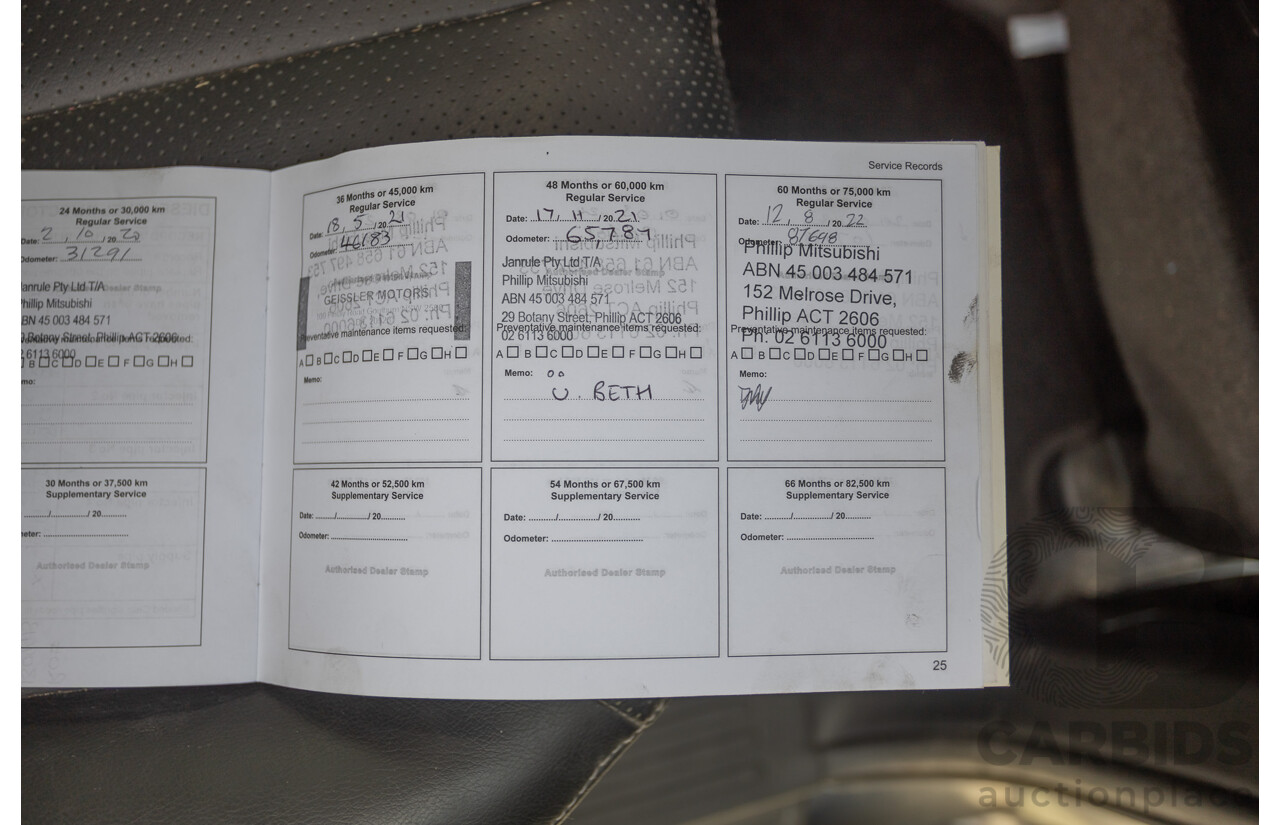 Service Records
24 Months or 30,000 km
Regular Service
Date: 2 / 10 / 20 20
Odometer: 31291
Janrule Pty Ltd T/A
Phillip Mitsubishi
ABN 45 003 484 571
Botany Street, Phillip ACT 2606
6113 6000
B C D E F G H
30 Months or 37,500 km
Supplementary Service
/ / 20
Authorised Dealer Stamp
36 Months or 45,000 km
Regular Service
Date: 18, 5 / 20 21
Odometer: 46183
GEISSLER MOTORS
Preventative maintenance items requested:
A B C D E F G H
Memo:
42 Months or 52,500 km
Supplementary Service
Date: / / 20
Odometer:
Authorised Dealer Stamp
48 Months or 60,000 km
Regular Service
Date: 17, 11 / 20 21
Odometer: 65,787
Janrule Pty Ltd T/A
Phillip Mitsubishi
ABN 45 003 484 571
29 Botany Street, Phillip ACT 2606
Preventative maintenance items requested:
02 6113 6000
A B C D E F G H
Memo:
BETH
54 Months or 67,500 km
Supplementary Service
Date: / / 20
Odometer:
Authorised Dealer Stamp
60 Months or 75,000 km
Regular Service
Date: 12, 8 / 20 22
Odometer: 87698
Phillip Mitsubishi
ABN 45 003 484 571
152 Melrose Drive,
Phillip ACT 2606
Preventative maintenance items requested:
Ph: 02 6113 6000
A B C D E F G H
Memo:
66 Months or 82,500 km
Supplementary Service
Date: / / 20
Odometer:
Authorised Dealer Stamp
25
CARBIDS
auctionplace